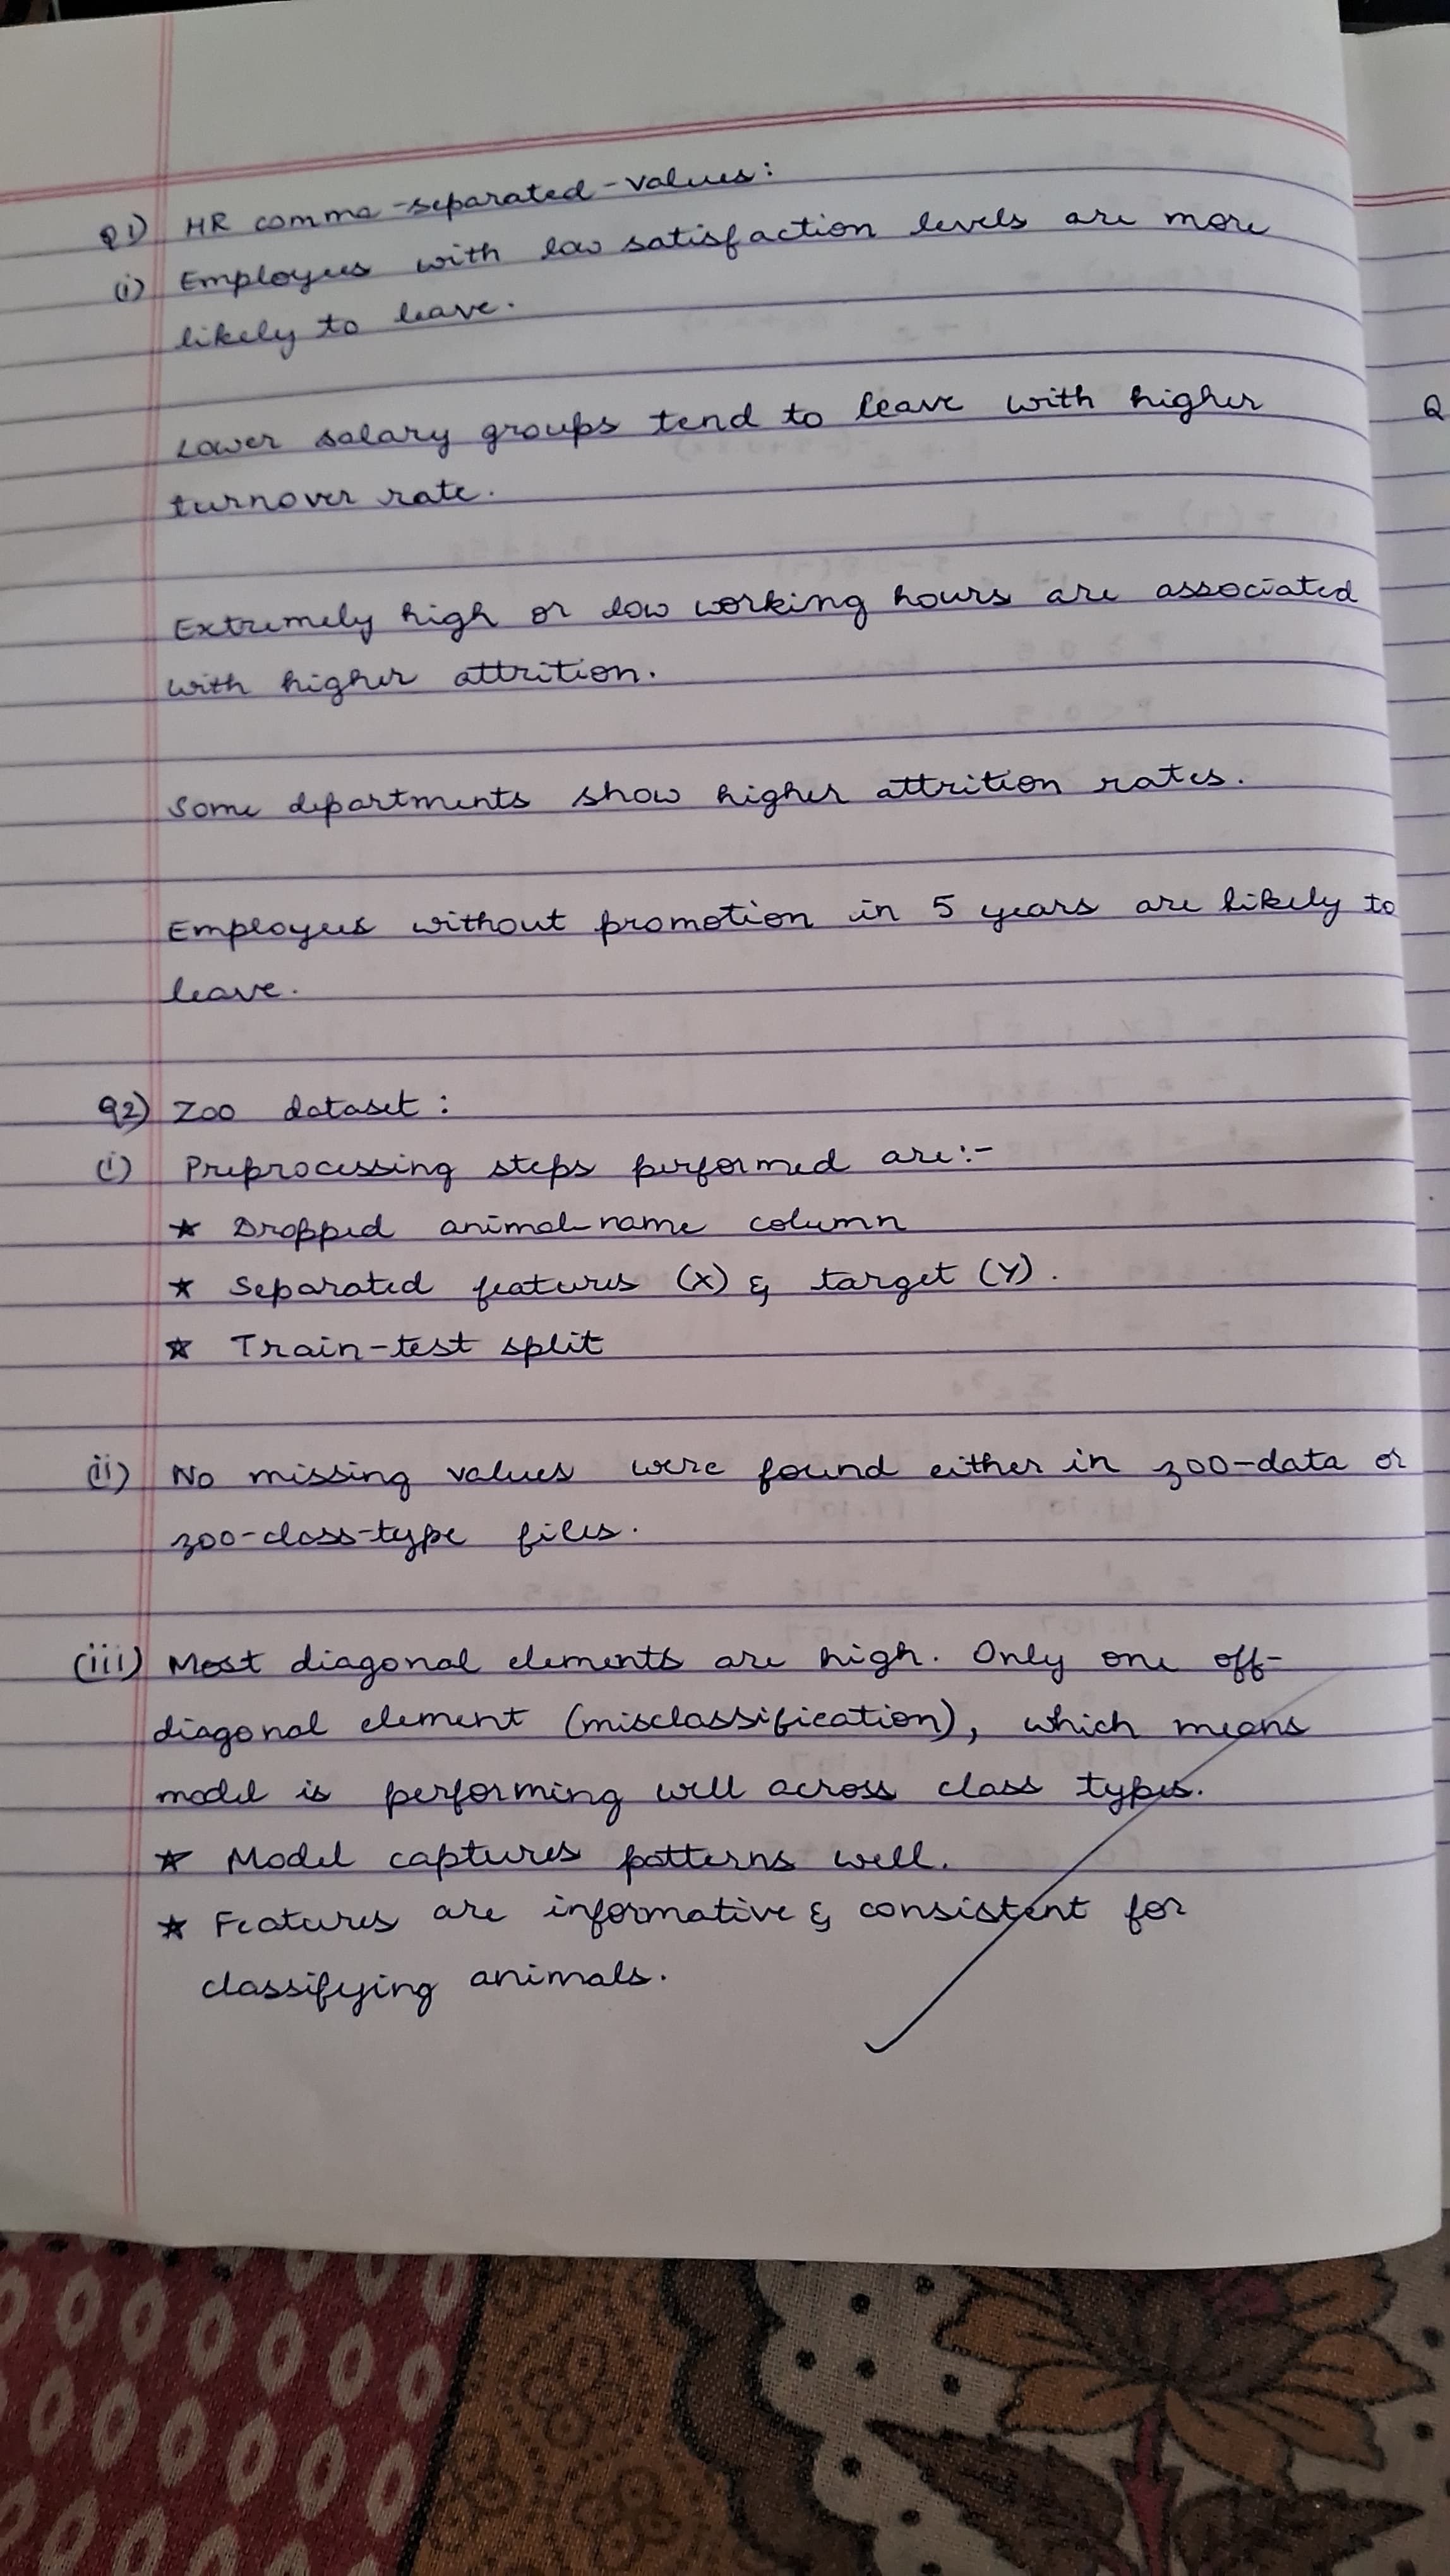 Q1) HR comma-separated-values:
(i) Employees with low satisfaction levels are more
likely to leave.
Lower salary groups tend to leave with higher
turnover rate.
Extremely high or low working hours are associated
with higher attrition.
Some departments show higher attrition rates.
Employees without promotion in 5 years are likely to
leave.
Q2) Zoo dataset:
(i) Preprocessing steps performed are:-
★ Dropped animal-name column
★ Separated features (X) & target (Y).
★ Train-test split
(ii) No missing values were found either in zoo-data or
zoo-class-type files.
(iii) Most diagonal elements are high. Only one off-
diagonal element (misclassification), which means
model is performing well across class types.
★ Model captures patterns well.
★ Features are informative & consistent for
classifying animals.
Q